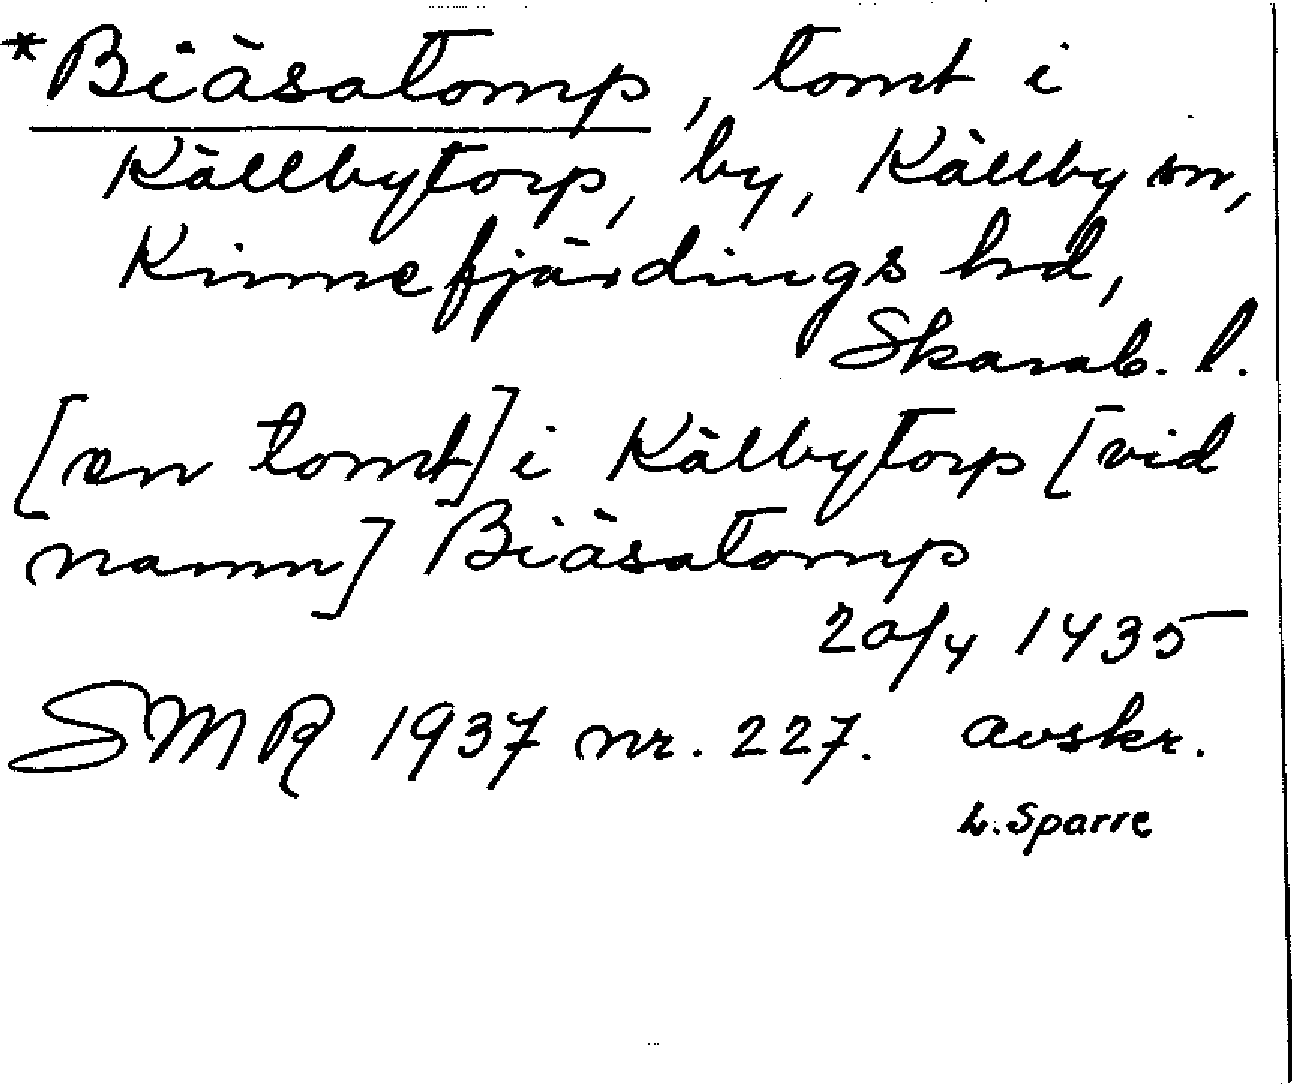 *Biäsatomp, tomt i
Källbytorp, by, Källby sn,
Kinnefjärdings hd,
Skarab. l.
[en tomt] i Kälbytorp [vid
namn] Biäsatomp
20/4 1435
SMR 1937 nr. 227. avskr.
L. Sparre